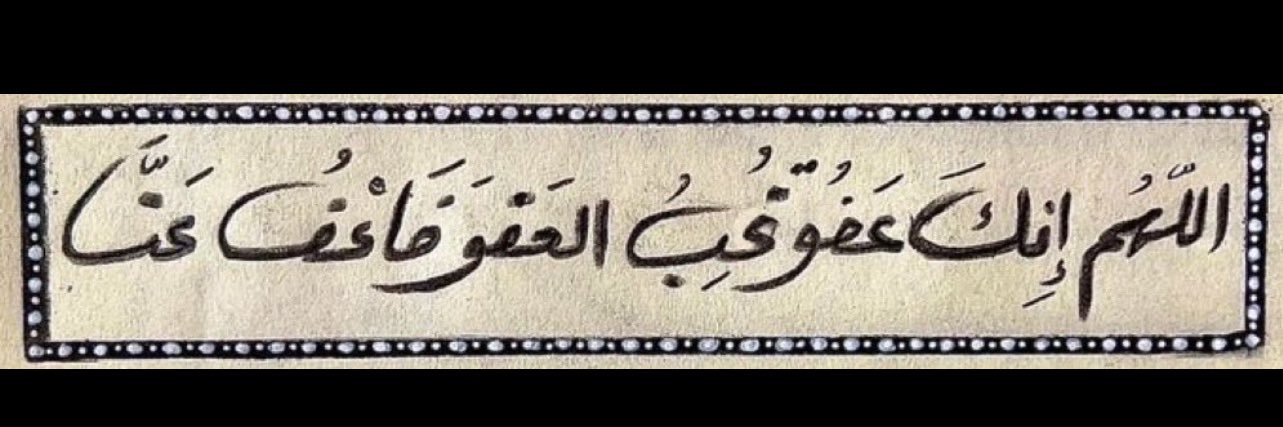 اللّهُم إِنكَ عَفُوٌ تُحِبُ العَفوَ فَاعْفُ عَنَّا